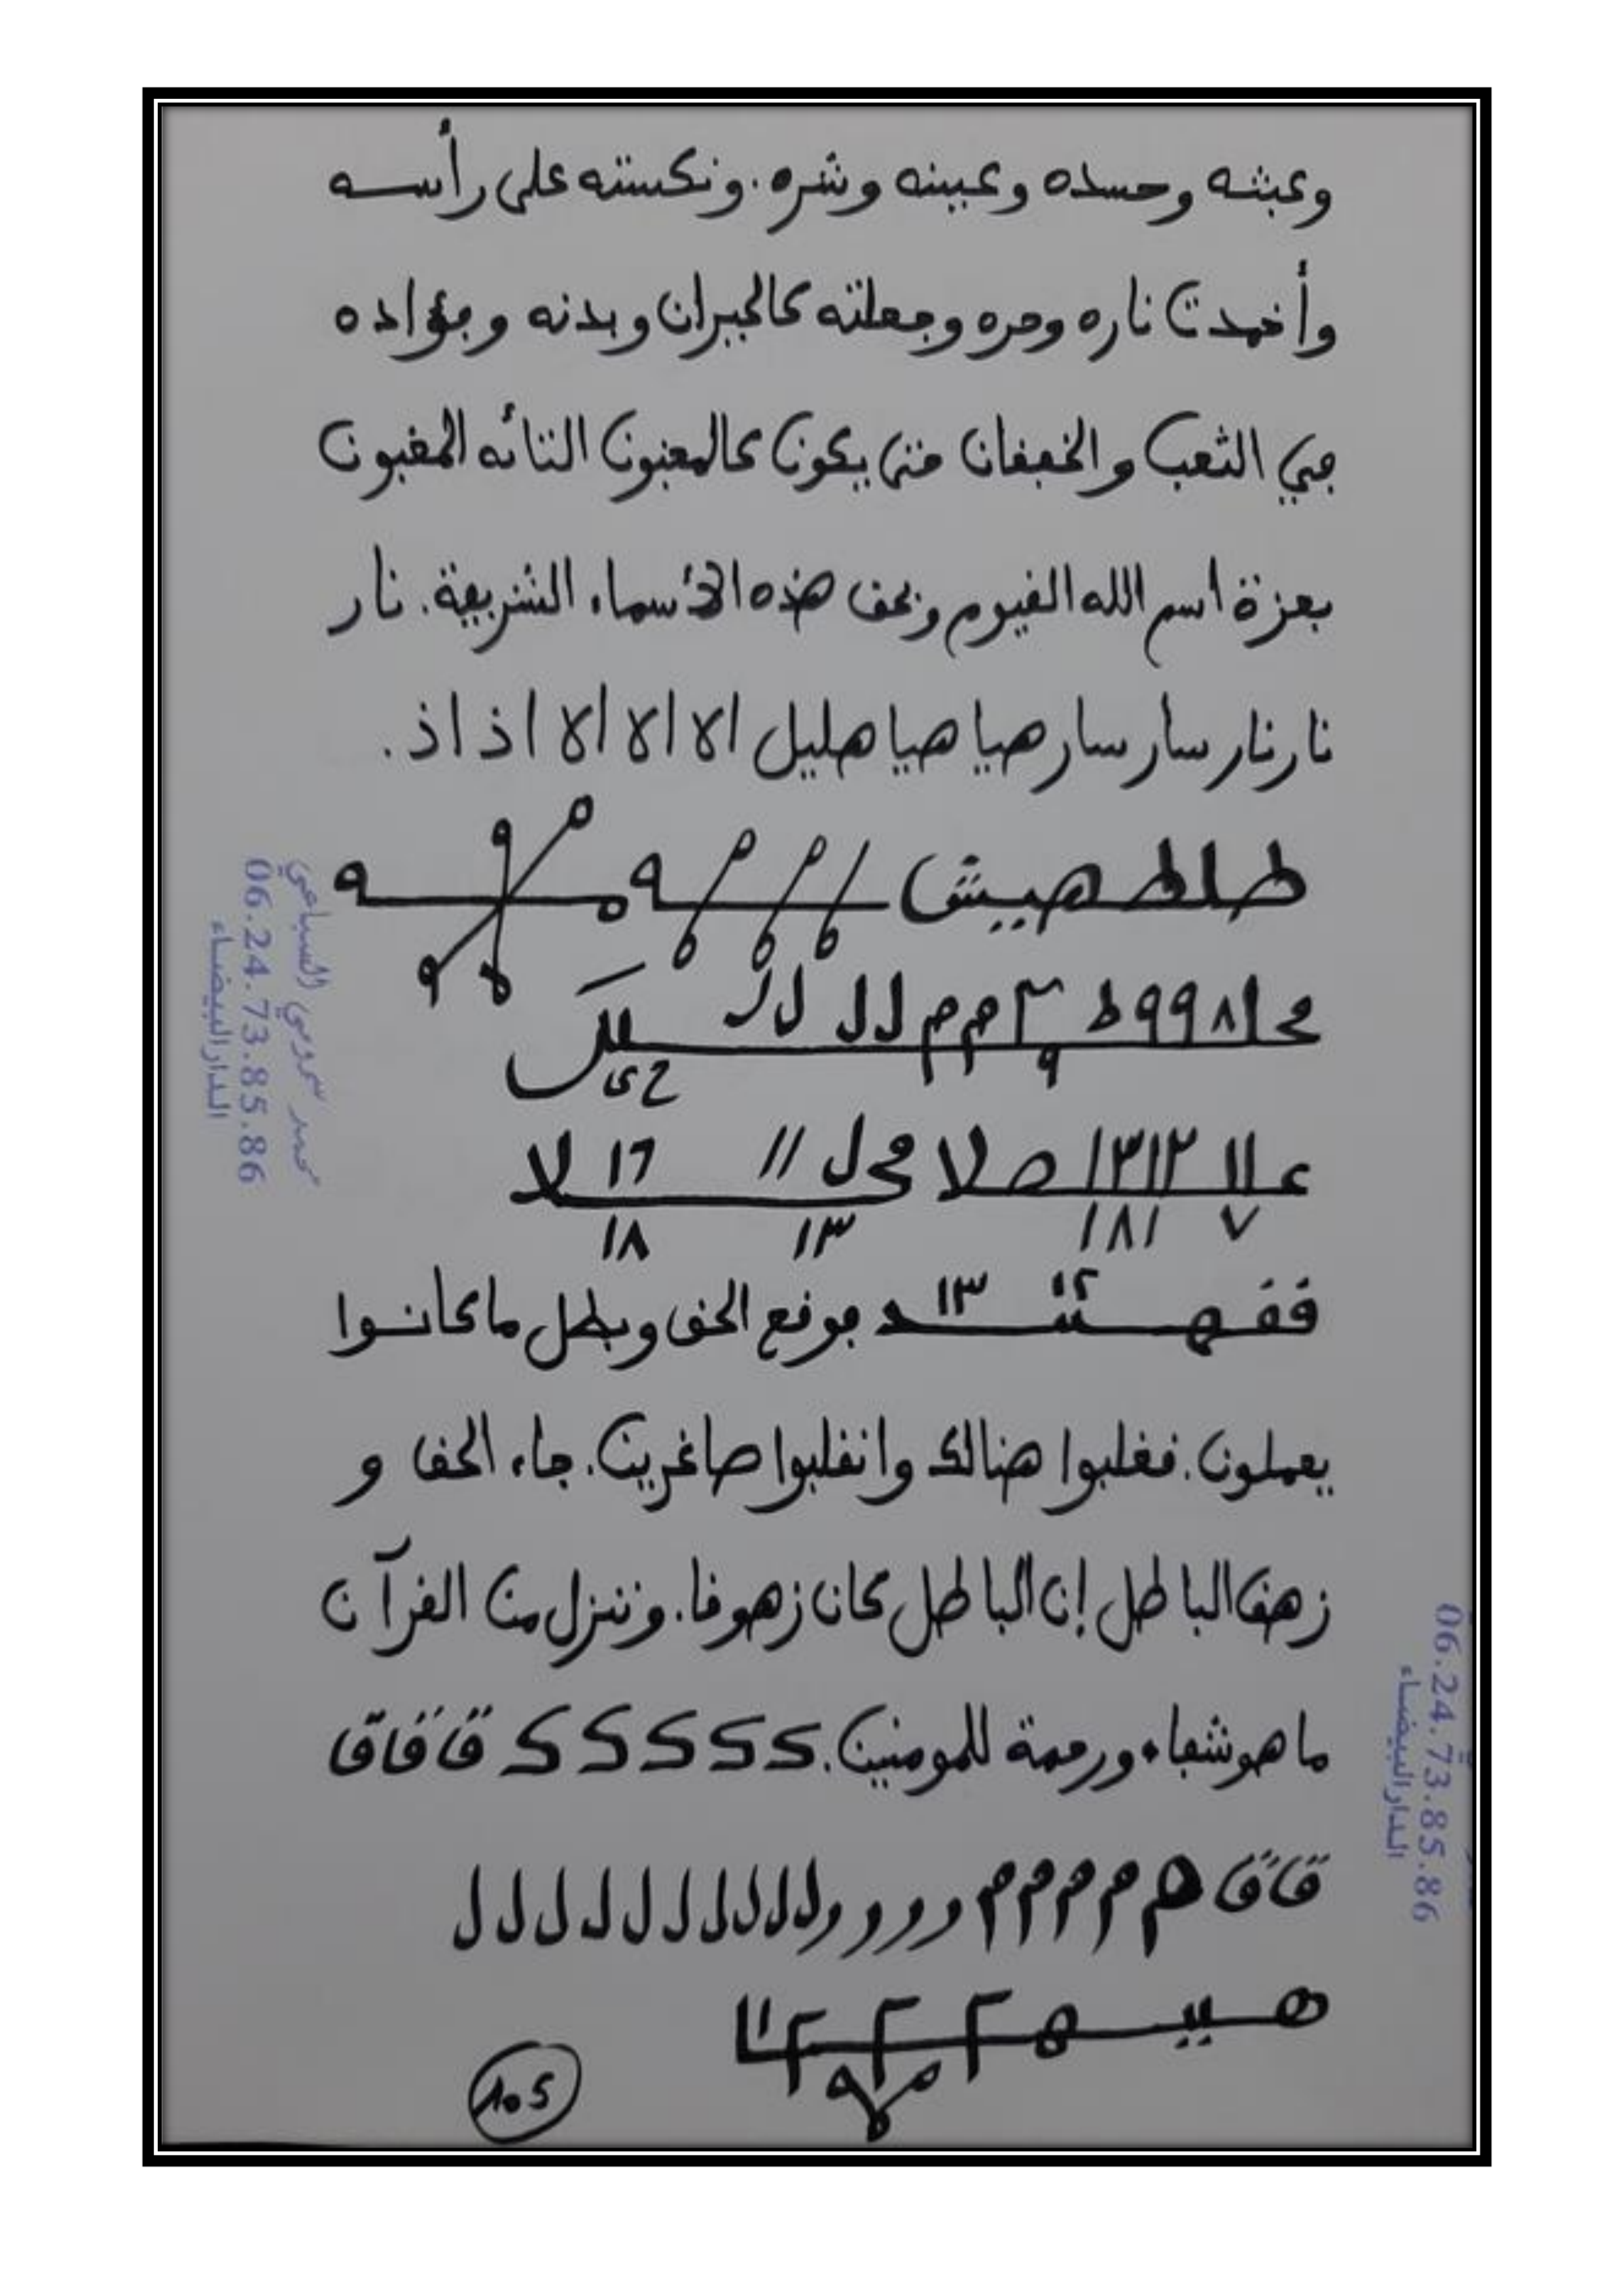 وعبثه وحسده وعينه وشره. ونكسته على رأسه
وأخمدت ناره وحره وجعلته كالجيران وبدنه وفؤاده
في التعب والخفقان حتى يكون كالمجنون التائه المغبون
بعزة اسم الله القيوم وبحق هذه الأسماء الشريفة. نار
نار نار سار سار هيا هيا هليل الا الا الا اذ اذ.
طلطهيش
محا٨٩٩ط
ققهتشد ١٣ ١٢ فوقع الحق وبطل ما كانوا
يعملون. فغلبوا هنالك وانقلبوا صاغرين. جاء الحق و
زهق الباطل إن الباطل كان زهوقا. وننزل من القرآن
ما هو شفاء ورحمة للمومنين. ك ك ك ك ك ك ق ق ق
ق ق م م م م م و و و و ل ل ل ل ل ل ل ل ل ل
105
محمد سرومي السباعي
06.24.73.85.86
الدار البيضاء
06.24.73.85.86
الدار البيضاء